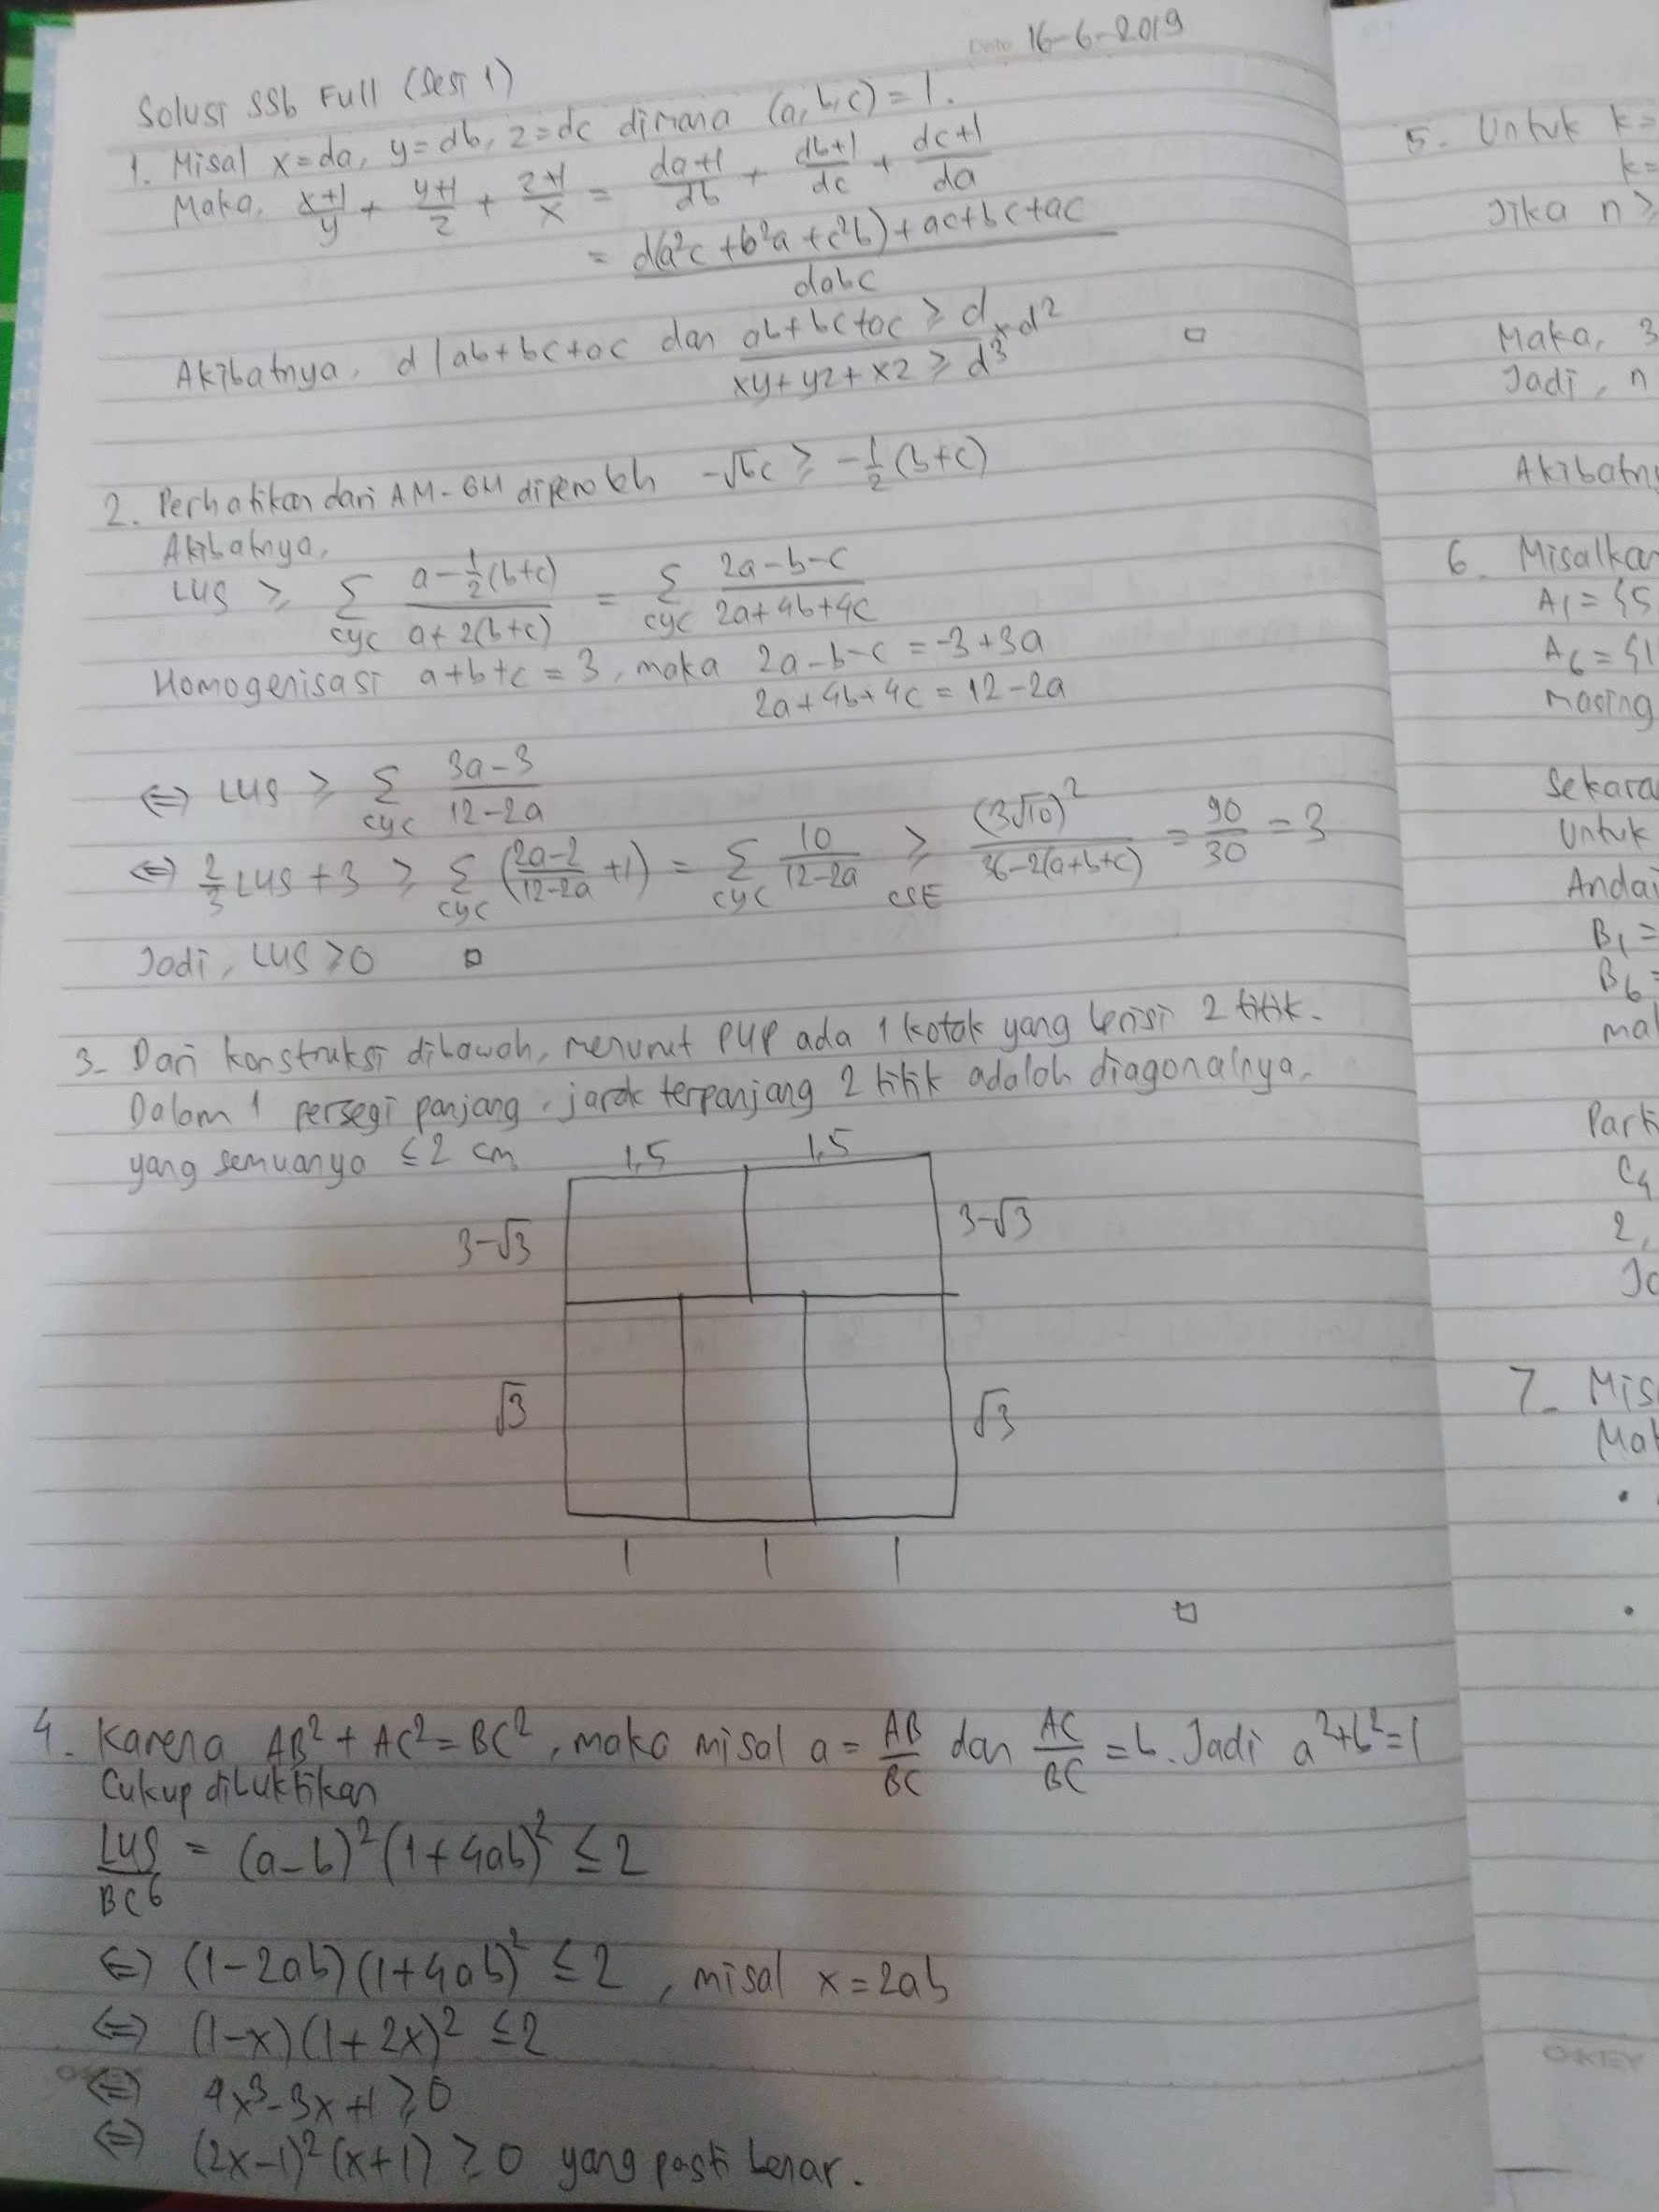 Date 16-6-2019
Solusi SSb Full (Sesi 1)
1. Misal x=da, y=db, z=dc dimana (a,b,c)=1.
Maka, (x+1)/y + (y+1)/z + (z+1)/x = (da+1)/db + (db+1)/dc + (dc+1)/da
= (d(a²c+b²a+c²b)+ac+bc+ac)/dabc
Akibatnya, d | ab+bc+ac dan ab+bc+ac ≥ d ×d²
xy+yz+xz ≥ d³ □
2. Perhatikan dari AM-GM diperoleh -√bc ≥ -½(b+c)
Akibatnya,
LHS ≥ Σcyc (a-½(b+c))/(a+2(b+c)) = Σcyc (2a-b-c)/(2a+4b+4c)
Homogenisasi a+b+c=3, maka 2a-b-c=-3+3a
2a+4b+4c=12-2a
⇔ LHS ≥ Σcyc (3a-3)/(12-2a)
⇔ ⅔LHS+3 ≥ Σcyc ((2a-2)/(12-2a)+1) = Σcyc 10/(12-2a) ≥CSE (3√10)²/(36-2(a+b+c)) = 90/30 = 3
Jadi, LHS ≥ 0 □
3. Dari konstruksi dibawah, menurut PHP ada 1 kotak yang berisi 2 titik.
Dalam 1 persegi panjang, jarak terpanjang 2 titik adalah diagonalnya.
yang semuanya ≤2 cm
1,5 1,5
3-√3 3-√3
√3 √3
1 1 1
□
4. Karena AB²+AC²=BC², maka misal a=AB/BC dan AC/BC=b. Jadi a²+b²=1
Cukup dibuktikan
LHS/BC⁶ = (a-b)²(1+4ab)² ≤ 2
⇔ (1-2ab)(1+4ab)² ≤ 2, misal x=2ab
⇔ (1-x)(1+2x)² ≤ 2
⇔ 4x³-3x+1 ≥ 0
⇔ (2x-1)²(x+1) ≥ 0 yang pasti benar.
5. Untuk k=
k=
Jika n ≥
Maka, 3
Jadi, n
6. Misalkan
A₁={5
A₆={1
masing
Untuk
B₁=
B₆=
C₄
2,
7.
O-KEY